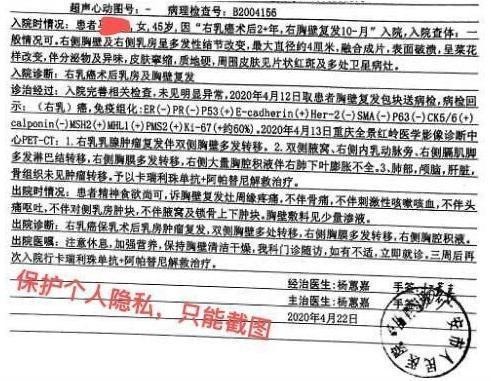 超声心动图号: 病理检查号: B2004156
入院时情况: 患者, 女, 45岁, 因 “右乳癌术后2+年, 右胸壁复发10-月” 入院, 入院查体: 一
般情况可。右侧胸壁及右侧乳房呈多发性结节改变, 最大直径约4厘米, 融合成片, 表面破溃, 呈菜花
样改变, 伴分泌物及异味, 皮肤挛缩, 质地硬, 周围皮肤见片状红斑及多处卫星病灶。
入院诊断: 右乳癌术后乳房及胸壁复发
诊治经过: 入院完善相关检查, 未见明显异常, 2020年4月12日取患者胸壁复发包块送病检, 病检回
示: (右乳) 癌, 免疫组化: ER(-)PR(-)P53(+)E-cadherin(+)Her-2(-)SMA(-)P63(-)CK5/6(+)
calponin(-)MSH2(+)MHL1(+)PMS2(+)Ki-67(+约60%)。2020年4月13日重庆全景红岭医学影像诊断中
心PET-CT: 1. 右乳乳腺肿瘤复发伴双侧胸壁多发转移。2. 双侧腋窝、右侧内乳动脉旁、右侧膈肌脚
多发淋巴结转移, 右侧胸膜多发转移, 右侧大量胸腔积液伴右肺下叶膨胀不全。3. 肺部, 颅脑, 肝脏,
骨组织未见肿瘤转移。予以卡瑞利珠单抗+阿帕替尼解救治疗。
出院时情况: 患者精神食欲尚可, 诉胸壁复发灶周缘疼痛, 不伴骨痛, 不伴刺激性咳嗽咳血, 不伴头
痛呕吐, 不伴对侧乳房肿块, 不伴腋窝及锁骨上下肿块。胸壁敷料见少量渗液。
出院诊断: 右乳癌保乳术后乳房肿瘤复发, 双侧胸壁多处转移, 右侧胸膜多发转移, 右侧胸腔积液。
出院医嘱: 注意休息, 加强营养, 保持胸壁清洁干燥, 我科门诊随访, 如有不适, 立即就诊, 三周后再
次入院行卡瑞利珠单抗+阿帕替尼解救治疗。
经治医生: 杨惠嘉 手签:
主治医生: 杨惠嘉 手签:
2020年4月22日
保护个人隐私, 只能截图
安市人民医